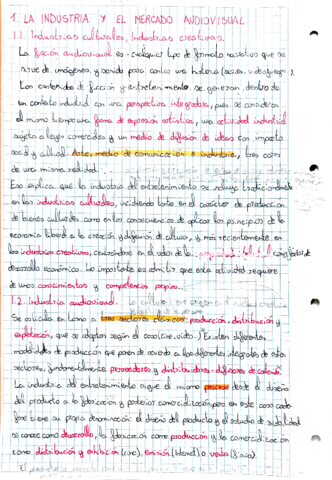 1. LA INDUSTRIA Y EL MERCADO AUDIOVISUAL
1.1. Industrias culturales, Industrias creativas.
La ficción audiovisual es cualquier tipo de formato narrativo que se
sirve de imágenes y sonido para contar una historia (series, videojuegos).
Los contenidos de ficción y entretenimiento se generan dentro de
un contexto industrial con una perspectiva integradora, pues se consideran
al mismo tiempo una forma de expresión artística, una actividad industrial
sujeta a leyes comerciales y un medio de difusión de ideas con impacto
social y cultural. Arte, medio de comunicación e industria, tres caras
de una misma realidad.
Eso explica que la industria del entretenimiento se incluya tradicionalmente
en las industrias culturales, incidiendo tanto en el carácter de producción
de bienes culturales como en las consecuencias de aplicar los principios de la
economía liberal a la creación y difusión de cultura, y más recientemente en
las industrias creativas, centrándose en el valor de la
desarrollo económico. Lo importante es admitir que esta actividad requiere
de unos conocimientos y competencias propios.
1.2. Industria audiovisual.
Se articula en torno a tres sectores clásicos: producción, distribución y
explotación, que se adaptan según el caso (cine, video). Existen diferentes
modalidades de producción que ponen de acuerdo a los diferentes integrantes de estos
sectores, fundamentalmente proveedores y distribuidores-difusores de contenido.
La industria del entretenimiento sigue el mismo proceso desde el diseño
del producto a la fabricación y posterior comercialización pero en este caso cada
fase tiene su propia denominación: el diseño del producto y el estudio de viabilidad
se conoce como desarrollo, la fabricación como producción y la comercialización
como distribución y exhibición (cine), emisión (televisión) o venta (física).